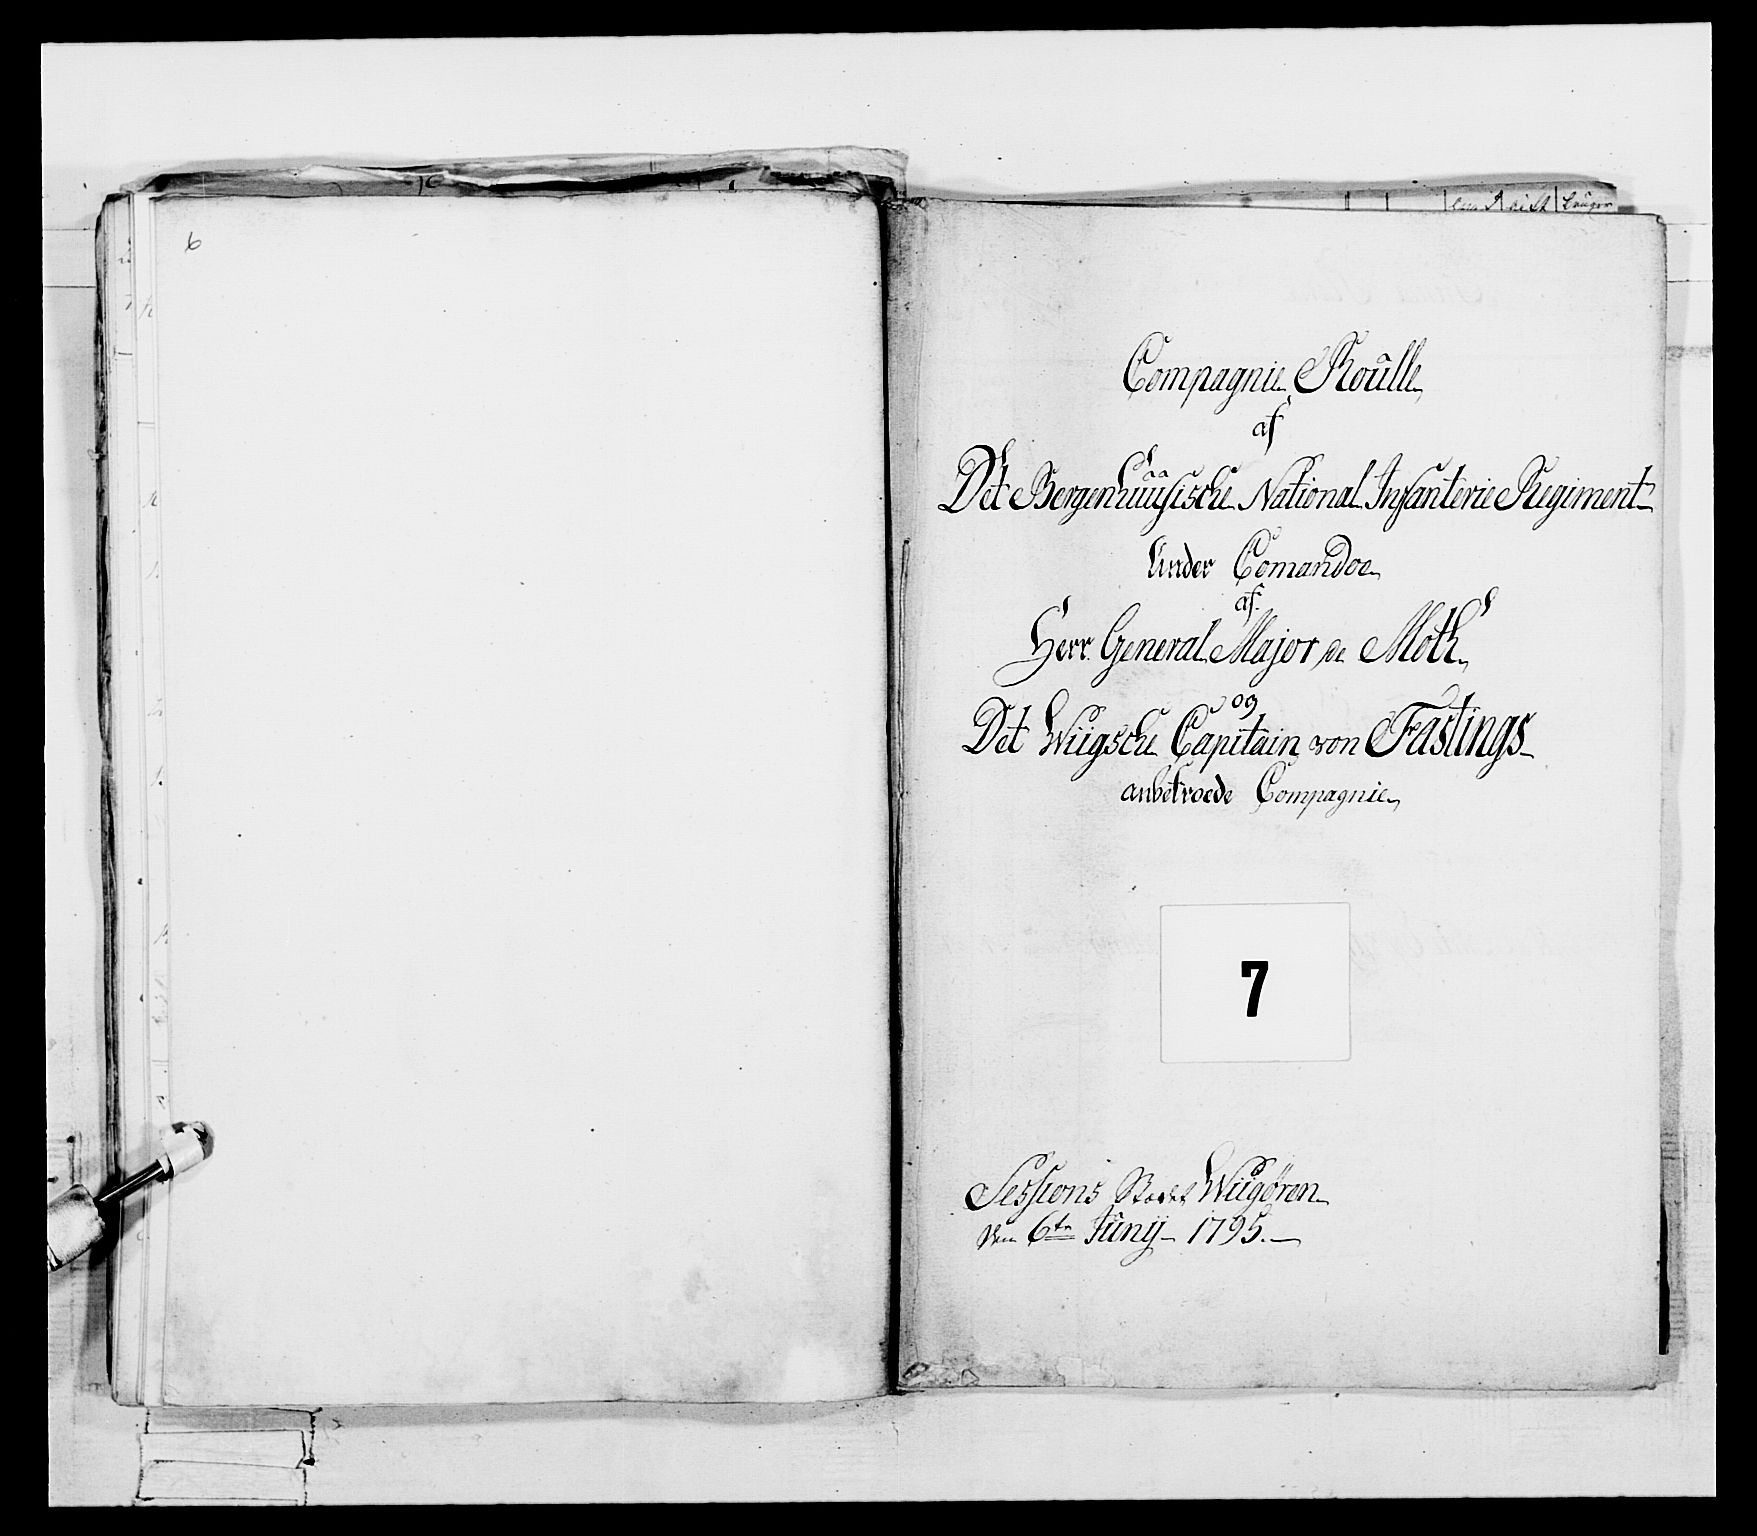 6
Compagnie Roulle
af
Det Bergenhuusische National Infanterie Regiment
Under Comandoe
af
Herr General Major de Moth
og
Det Wiigsche Capitain von Fastings
anbetroede Compagnie
7
Sessions Stædet Wiigøren
den 6te Junij 1795.